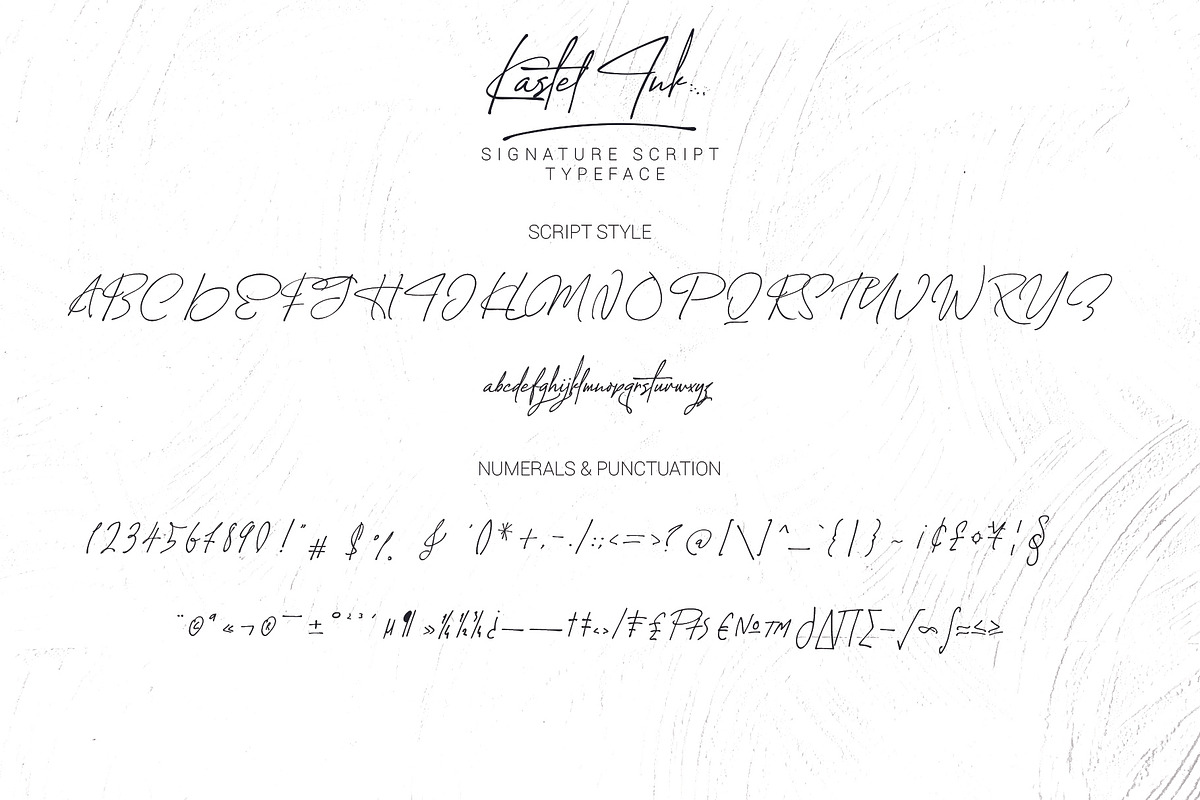 Kastel Ink
SIGNATURE SCRIPT
TYPEFACE
SCRIPT STYLE
ABCDEFGHIJKLMNOPQRSTUVWXYZ
abcdefghijklmnopqrstuvwxyz
NUMERALS & PUNCTUATION
1234567890!"# $ % & '()*+,-./:;<=>?@[\]^_`{|}~¡¢£¤¥¦§
¨©ª«¬®¯±°²³´µ¶»¼½¾¿–—†‡‹›⁄₣₤₧€№™∂∆∏∑−√∞∫≈≤≥